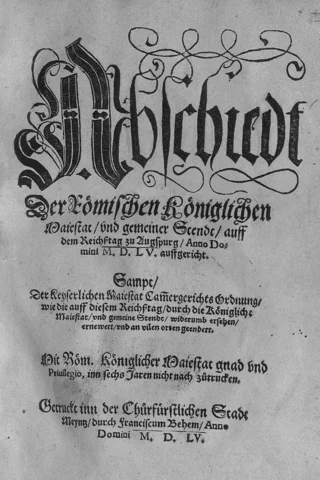 Abschiedt
Der Römischen Königlichen
Maiestat/ vnd gemeiner Stende/ auff
dem Reichßtag zu Augspurg/ Anno Do-
mini M. D. LV. auffgericht.
Sampt/
Der Keyserlichen Maiestat Cam̃ergerichts Ordnung/
wie die auff diesem Reichßtag/ durch die Königliche
Maiestat/ vnd gemeine Stende/ widerumb ersehen/
ernewert/ vnd an vilen orten geendert.
Mit Röm. Königlicher Maiestat gnad vnd
Priuilegio, inn sechs Jaren nicht nach zůtrucken.
Getruckt inn der Chürfürstlichen Stadt
Meyntz/ durch Franciscum Behem/ Anno
Domini M. D. LV.